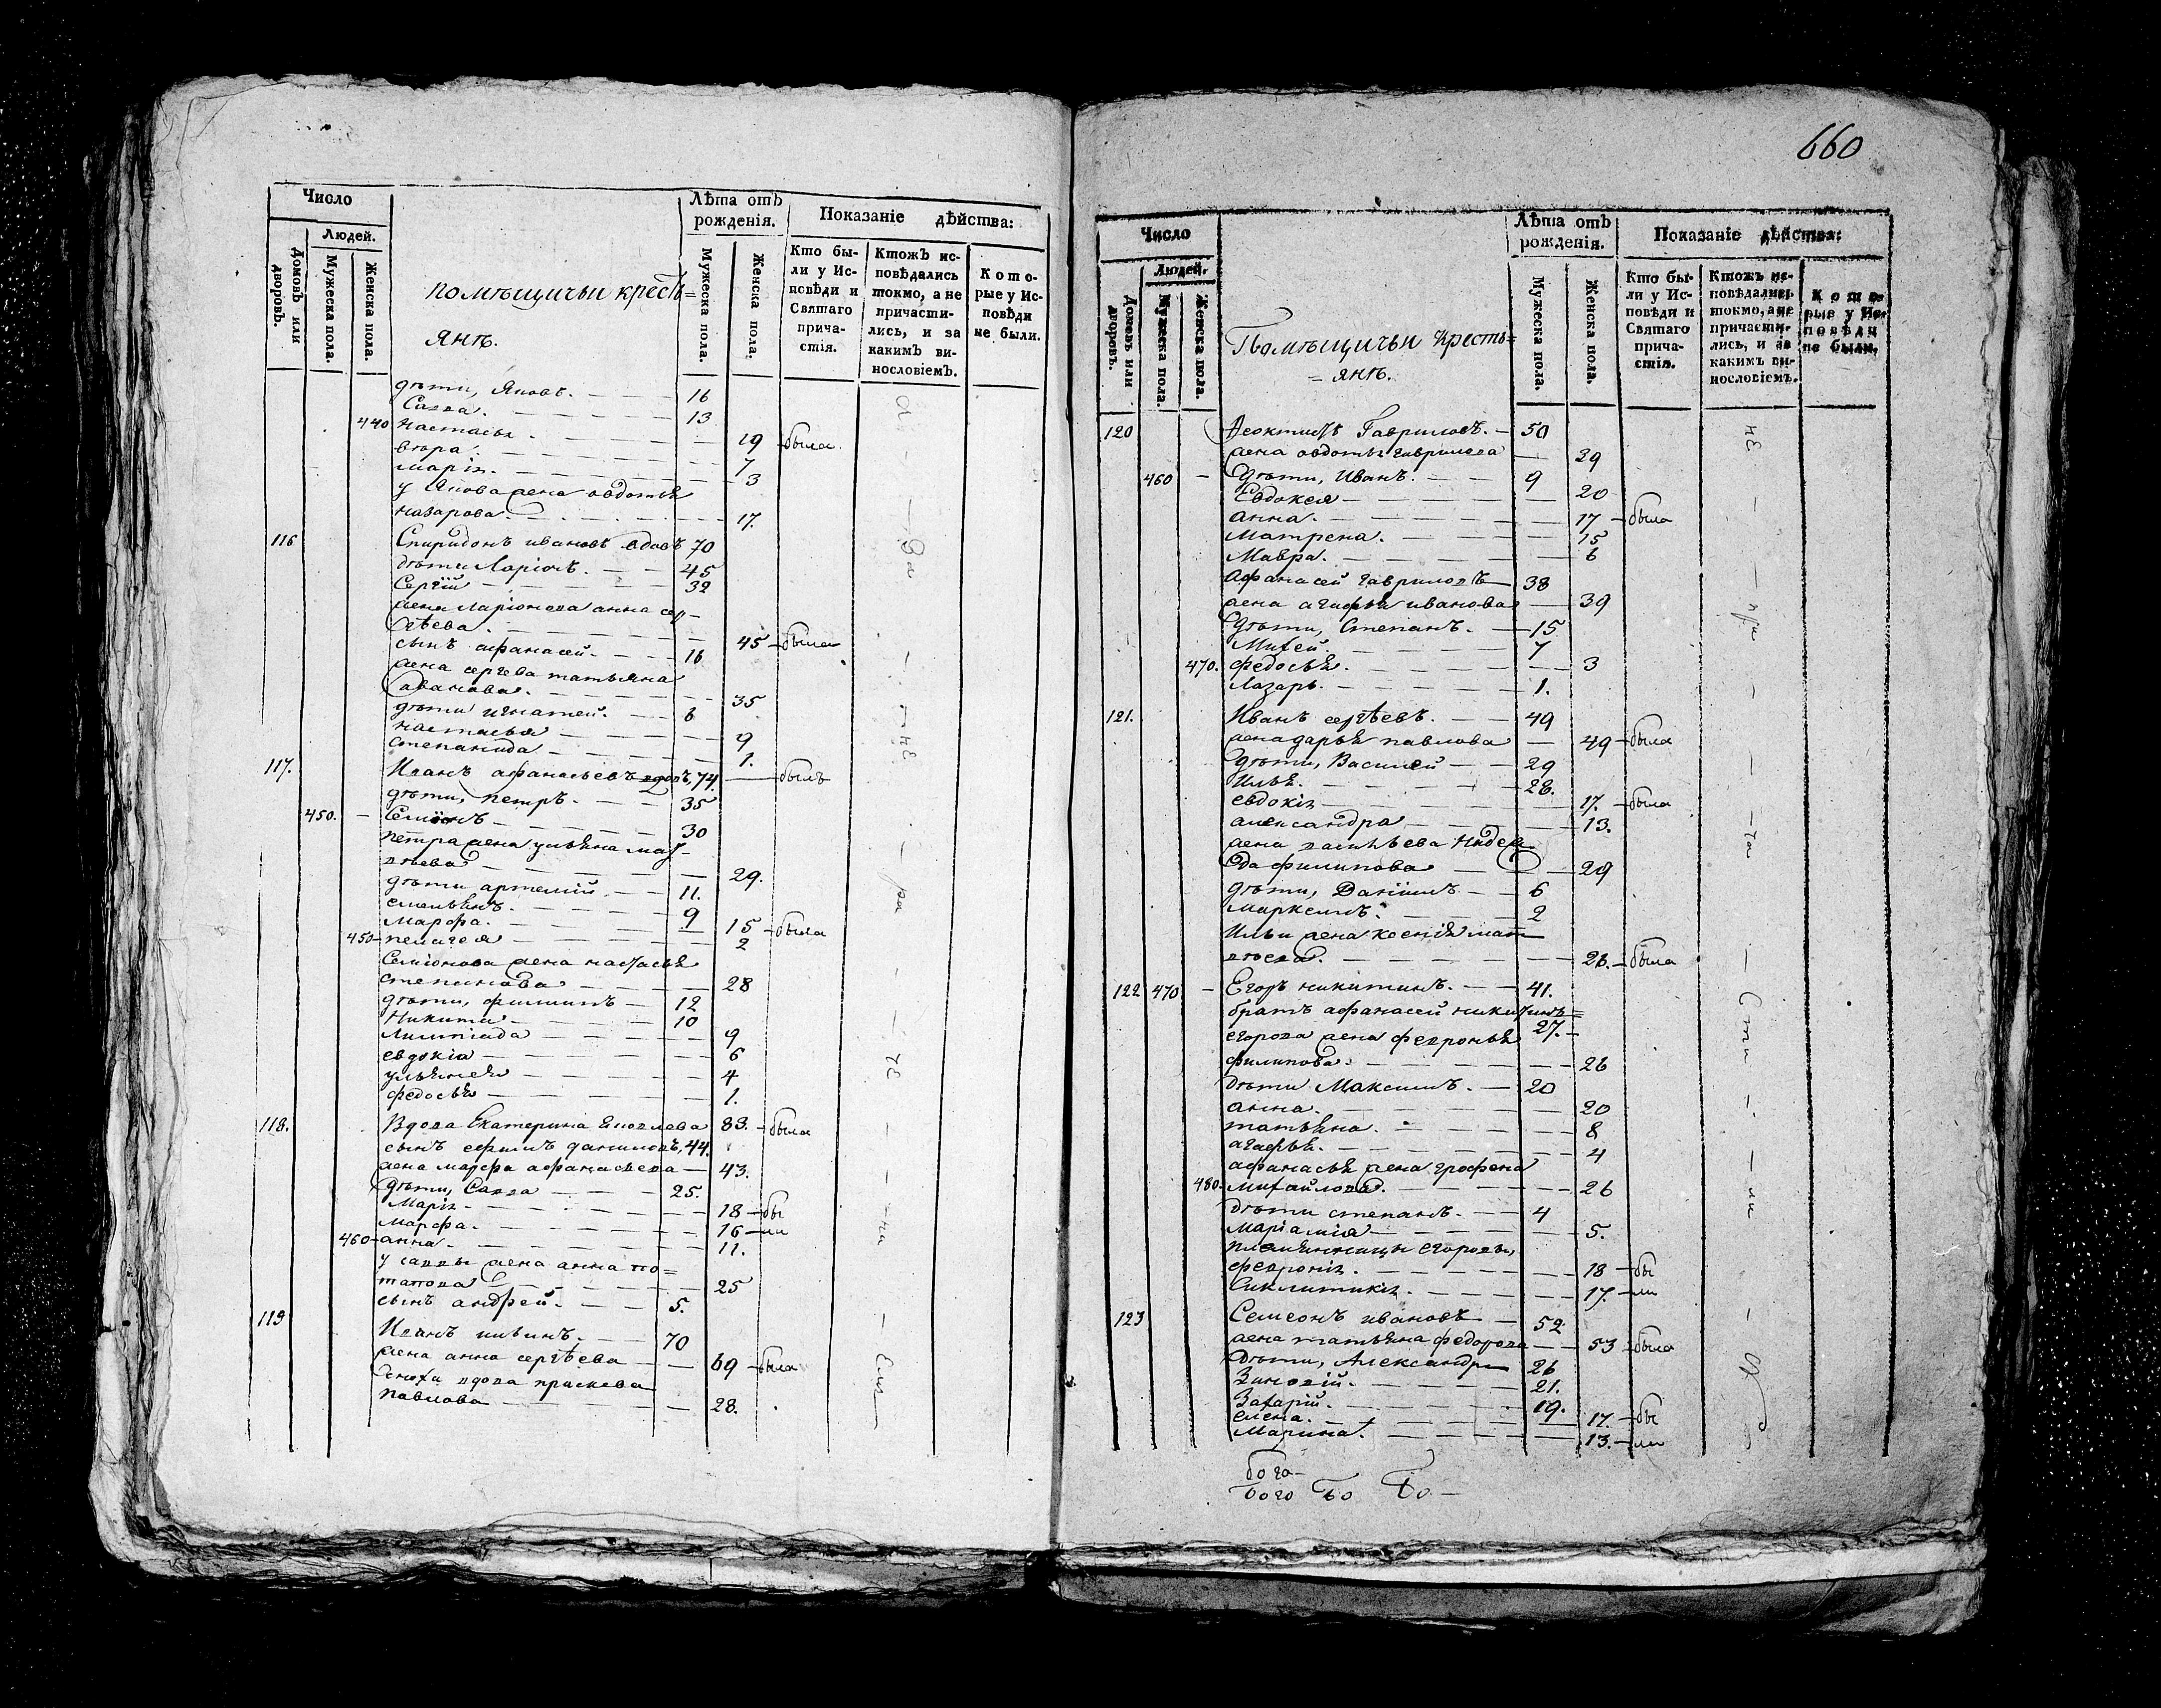 Число
Людей.
Домовъ или дворовъ.
Мужеска пола.
Женска пола.
помѣщичьи кресть=
янѣ.
Лѣта отъ рожденія.
Мужеска пола.
Женска пола.
Показаніе дѣйства:
Кто были у Исповѣди и Святаго причастія.
Ктожъ исповѣдались токмо, а не причастились, и за какимъ винословіемъ.
Которые у Исповѣди не были.
дѣти, Яковъ. 16
Савва. 13
440 Настасья. 19 была
вѣра. 7
марія. 3
у Якова жена овдотья
назарова. 17.
116 Спиридонъ ивановъ вдовъ 70
дѣти Ларіонъ. 45
Сергій 32
жена Ларіонова анна сер-
гѣева. 45 была
сынъ афанасей. 16
жена сергева татьяна
иванова. 35
дѣти игнатей. 6
настасья 9
степанида 1.
117. Иванъ афанасьевъ вдовъ, 74. былъ
дѣти, петръ. 35
450. Семіонъ 30
петра жена ульяна мат-
вѣева 29.
дѣти артемій. 11.
емельянъ. 9
Марфа. 15 была
450 пелагея 2
Семіонова жена настасья
степанова 28
дѣти, филипъ 12
Никита 10
Лимпіада 9
евдокіа 6
ульянея 4
федосья 1.
118. Вдова Екатерина Яковлева 83. была
сынъ ефимъ даниловъ, 44.
жена марфа афанасьева 43.
дѣти, Савва 25.
Марія 18 бы
марфа. 16 ли
460 анна 11.
у саввы жена анна по=
тапова 25
сынъ андрей. 5.
119 Иванъ ильинъ. 70
жена анна сергѣева 69 была
вдова праскева
павлова 28.
660
Число
Людей.
Домовъ или дворовъ.
Мужеска пола.
Женска пола.
Помѣщичьи кресть=
=янѣ.
Лѣта отъ рожденія.
Мужеска пола.
Женска пола.
Показаніе дѣйства:
Кто были у Исповѣди и Святаго причастія.
Ктожъ исповѣдались токмо, а не причастились, и за какимъ винословіемъ.
Которые у Исповѣди не были.
120 Феоктистъ Гавриловъ. 50
жена овдотья гаврилова 39
460 дѣти, Иванъ. 9
Евдокея 20
анна. 17 была
матрена. 15
Мавра. 6
афанасей гавриловъ 38
жена агафья иванова 39
дѣти, Степанъ. 15
Михей. 7
470. федосья. 3
Лазарь. 1.
121. Иванъ сергѣевъ. 49
жена дарья павлова 49 была
дѣти, Василей 29
Илья. 28.
евдокія 17. была
александра 13.
жена васильева Надеж-
да филипова 29
дѣти, Даніилъ 6
Маркелъ. 2
Ильи жена ксенія мат
вѣева. 26. была
122 470 Егоръ никитинъ. 41.
братъ афанасей никитинъ= 27.
егорова жена февронья
филипова. 26
дѣти Максимъ. 20
анна. 20
татьяна. 8
агафья. 4
афанасья жена грофена
480 михайлова. 26
дѣти степанъ. 4
маріамія 5.
племянницы егоровы,
февронія. 18 бы
Сиклитикія. 17. ли
123 Семеонъ ивановъ 52
жена татьяна федорова 53 была
дѣти, Александръ 26
Зиновій. 21.
Захарій. 19.
елена. 17. бы
Марина. 13. ли
бога
бого бо Бо